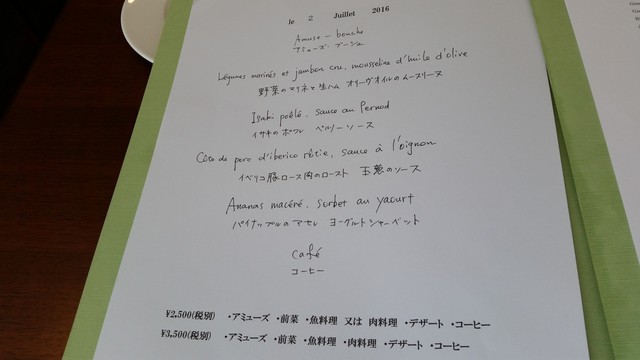 le 2 Juillet 2016
Amuse-bouche
アミューズ・ブーシュ
Légumes marinés et jambon cru, mousseline d'huile d'olive
野菜のマリネと生ハム オリーヴオイルのムースリーヌ
Isaki poêlé, sauce au Pernod
イサキのポワレ ペルノーソース
Côte de porc d'iberico rôtie, sauce à l'oignon
イベリコ豚ロース肉のロースト 玉葱のソース
Ananas macéré, sorbet au yaourt
パイナップルのマセレ ヨーグルトシャーベット
Café
コーヒー
¥2,500(税別) ・アミューズ ・前菜 ・魚料理 又は 肉料理 ・デザート ・コーヒー
¥3,500(税別) ・アミューズ ・前菜 ・魚料理 ・肉料理 ・デザート ・コーヒー